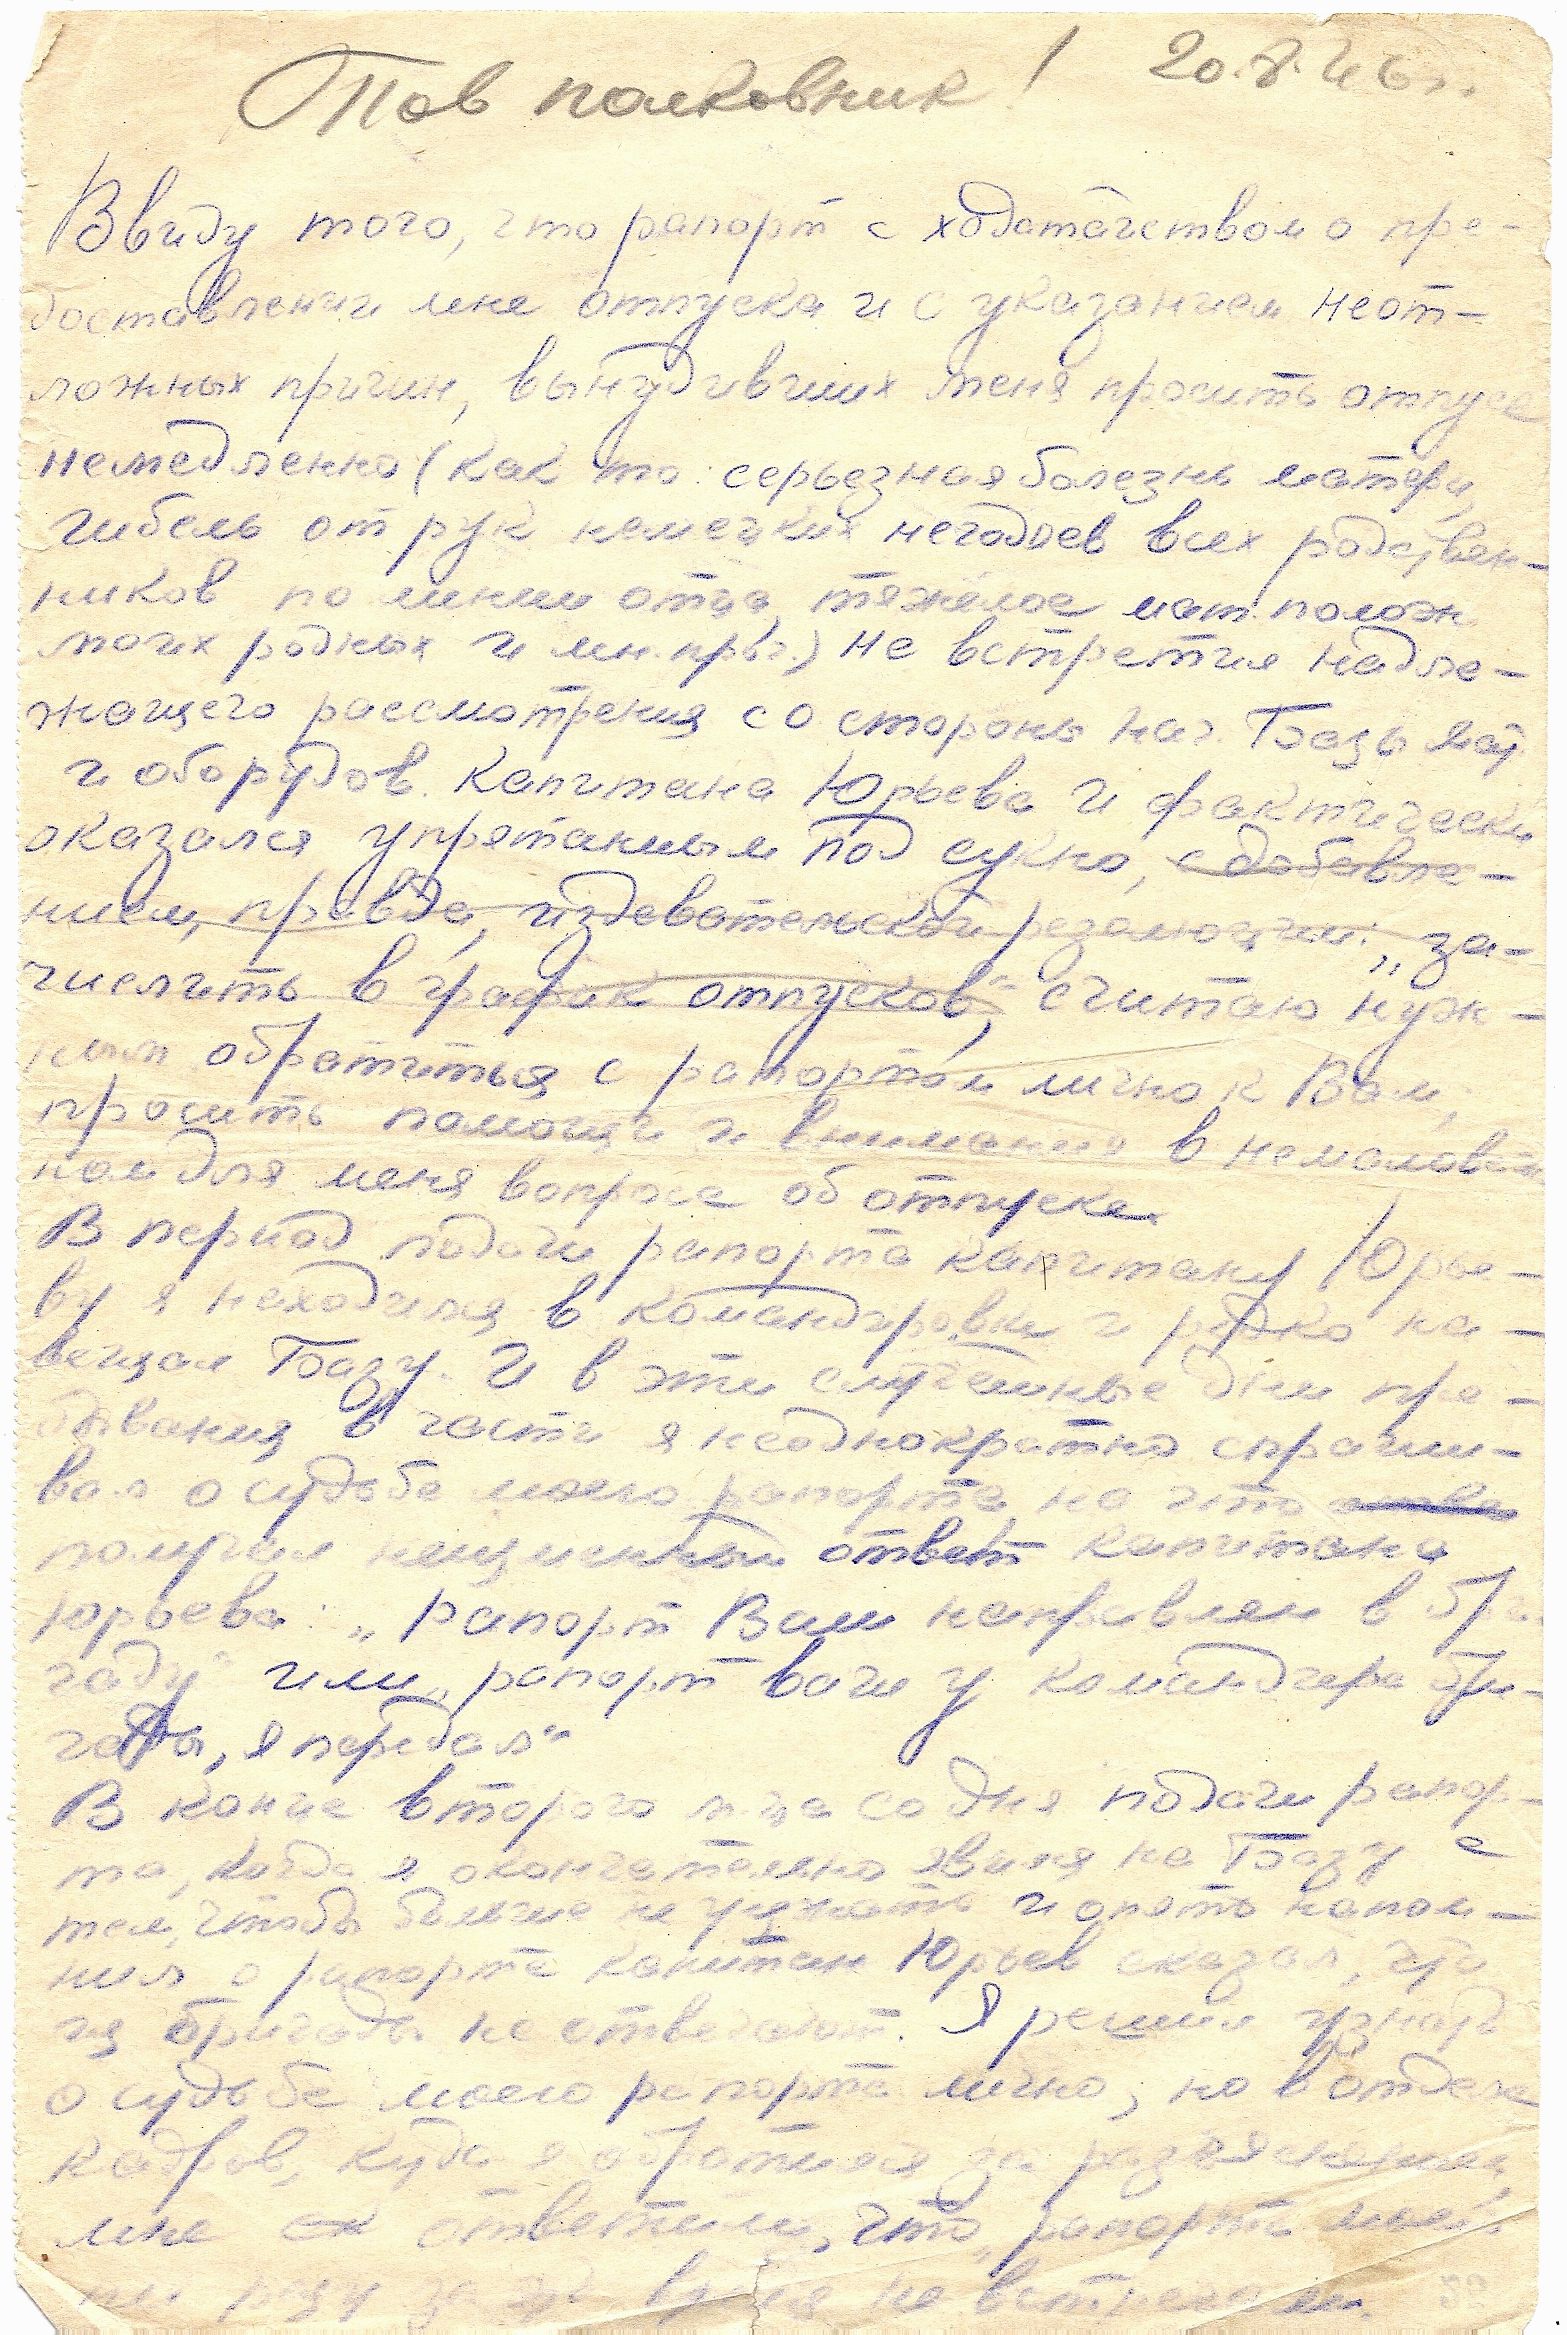 Тов полковник! 20.8.46 г.
Ввиду того, что рапорт с ходатайством о пре-
доставлении мне отпуска и с указанием неот-
ложных причин, вынудивших меня просить отпуск
немедленно (как то: серьезная болезнь матери,
гибель от рук немецких негодяев всех родствен-
ников по линии отца, тяжёлое мат. полож
моих родных и мн. др.) не встретил надле-
жащего рассмотрения со стороны нач. Базы
и оборудов. капитана Юрьева и фактически
оказался упрятанным под сукно, с добавле-
нием, правда, издевательской резолюции: „за-
числить в график отпусков", считаю нуж-
ным обратиться с рапортом лично к Вам,
просить помощи и внимания в немаловаж
ном для меня вопросе об отпуске.
В период подачи рапорта капитану Юрье-
ву я находился в командировке и редко на-
вещал Базу. И в эти случайные дни пре-
бывания в части я неоднократно спраши-
вал о судьбе моего рапорта на что
получал неизменный ответ капитана
Юрьева: „рапорт Ваш направлен в бри-
гаду" или „рапорт ваш у командира бри-
гады, я передал"
В конце второго м-ца со дня подачи рапор-
та, когда я окончательно явился на Базу с
тем, чтобы больше не уезжать и опять напом-
нил о рапорте капитан Юрьев сказал, что
из бригады не отвечают. Я решил узнать
о судьбе моего рапорта лично, но в отделе
кадров, куда я обратился за разъяснением,
мне ответили, что „рапорта
не встречали.